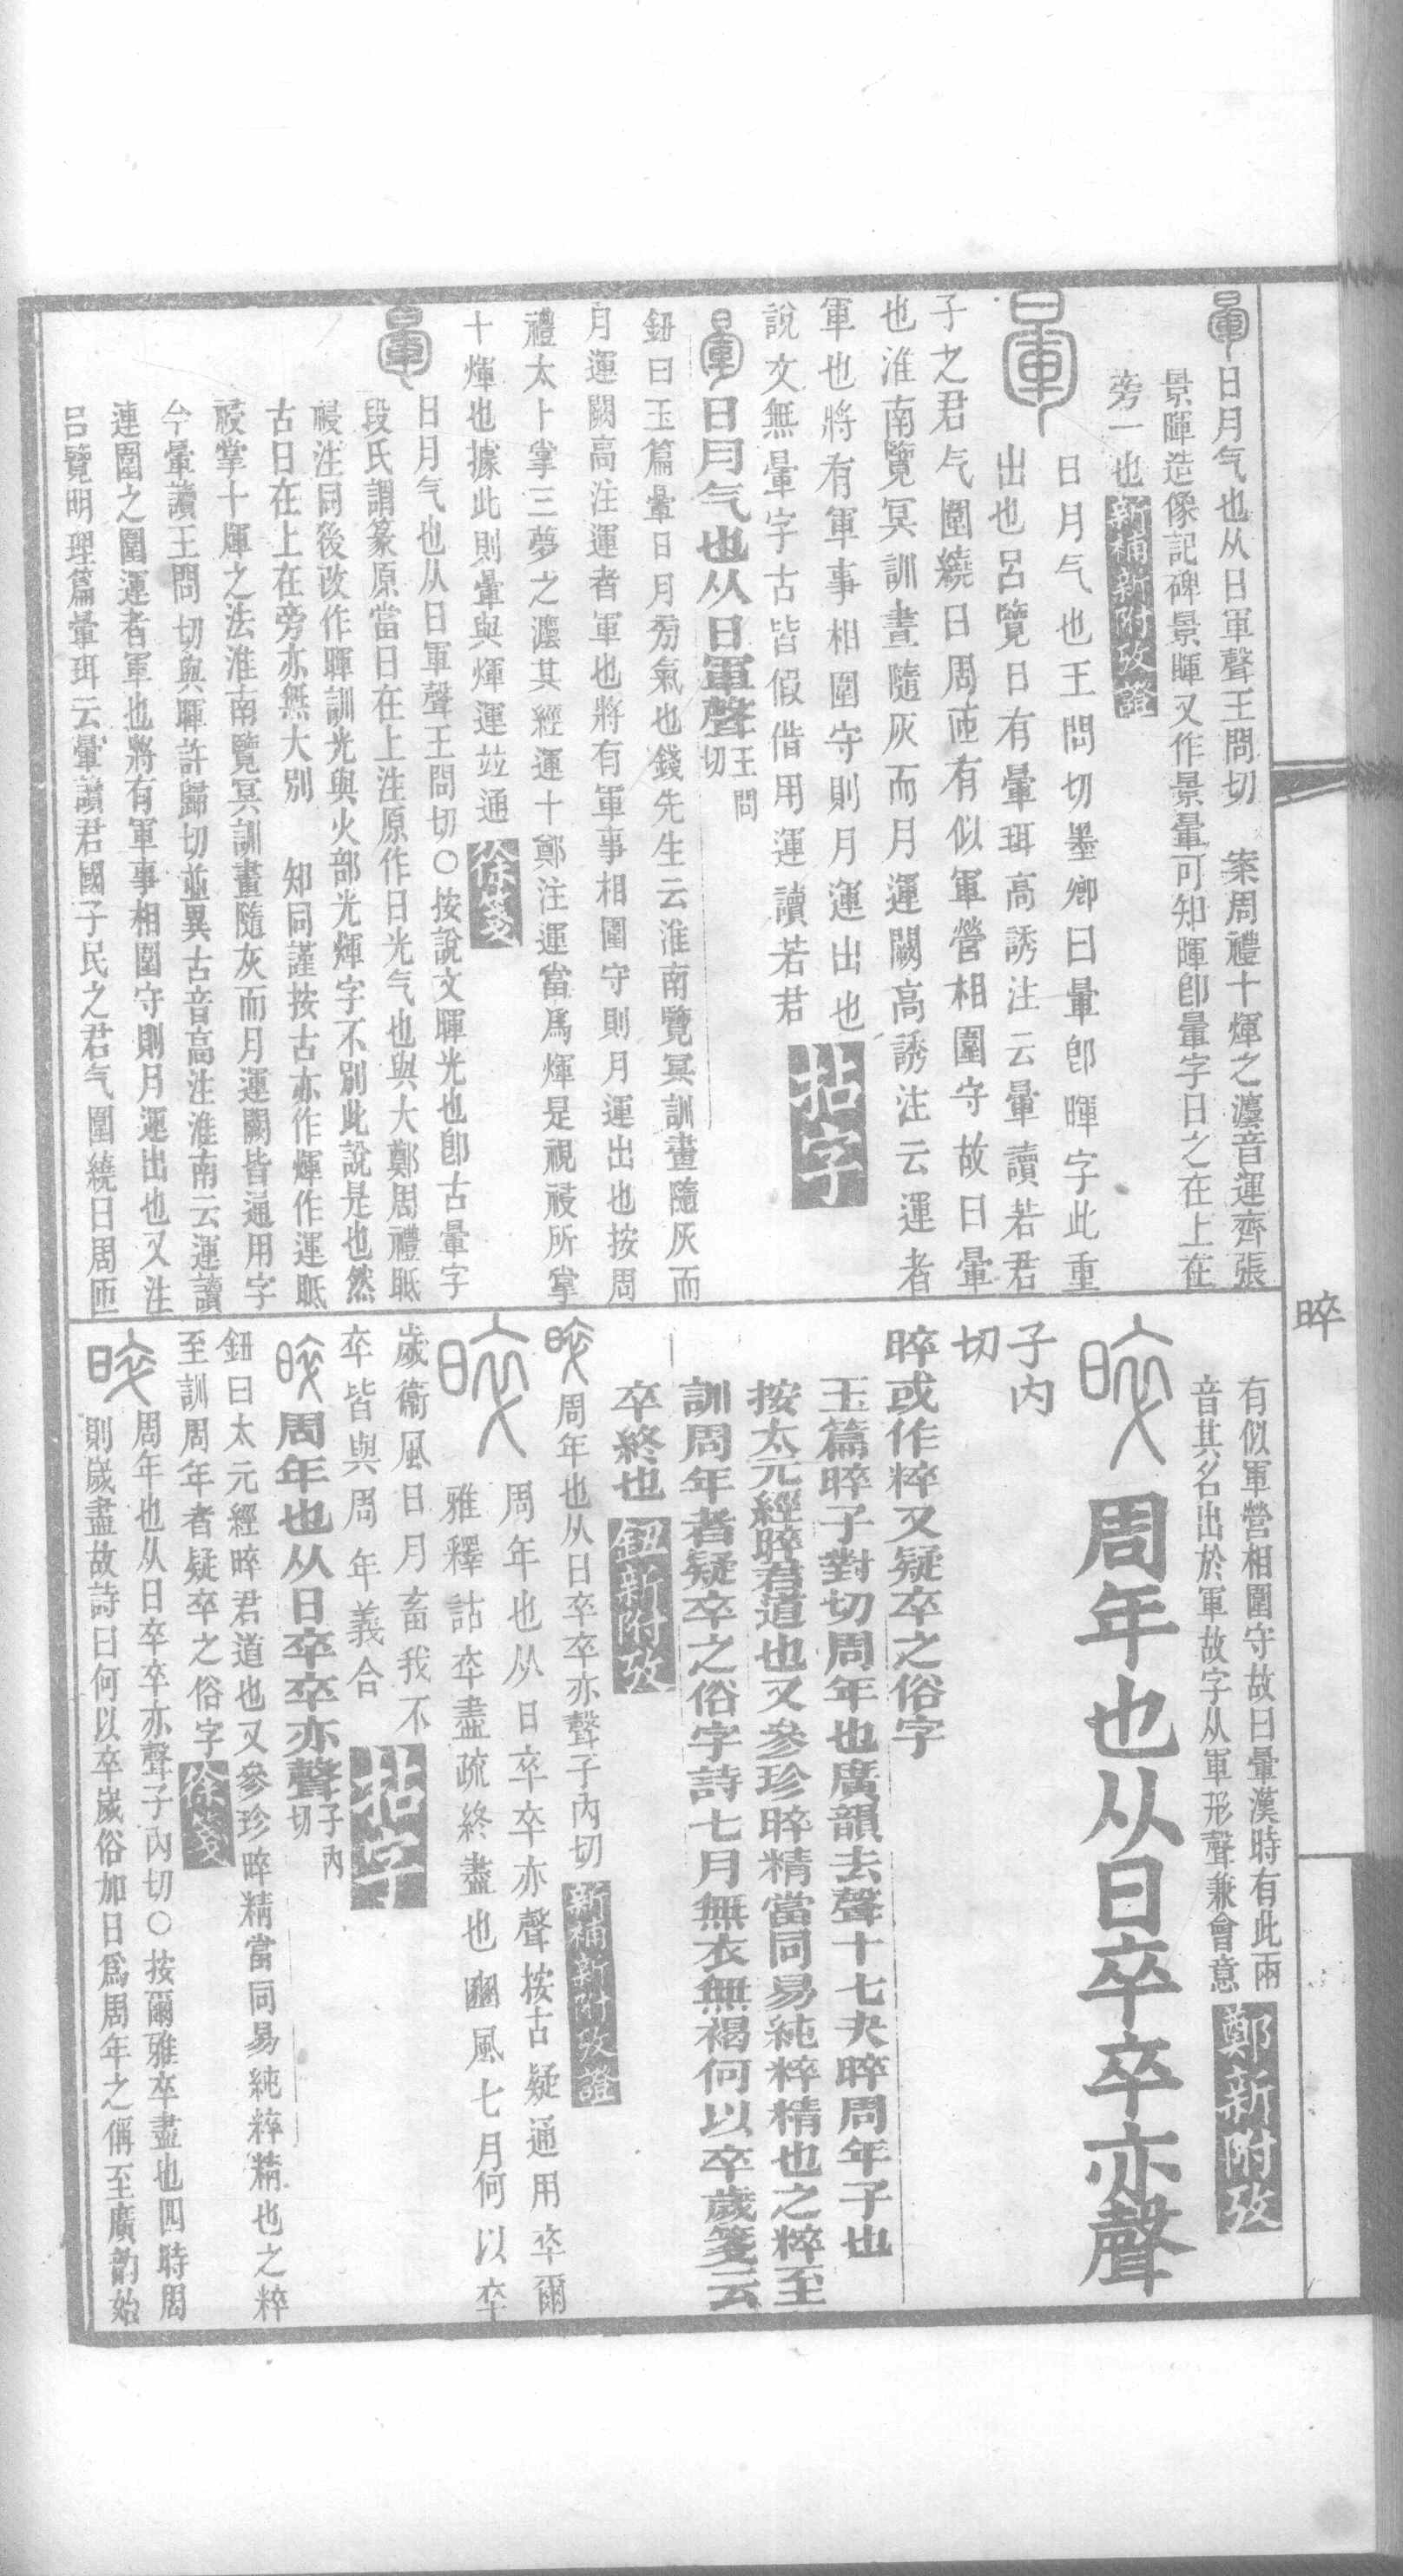 暈日月气也从日軍聲王問切 案周禮十煇之灋音運齊張
景暉造像記碑景暉又作景暈可知暉卽暈字日之在上在
旁一也新補新附攷證
暈 日月气也王問切墨卿曰暈卽暉字此重
出也呂覽日有暈珥高誘注云暈讀若君
子之君气圍繞日周匝有似軍營相圍守故曰暈
也淮南覽冥訓畫隨灰而月運闕高誘注云運者
軍也將有軍事相圍守則月運出也
說文無暈字古皆假借用運讀若君
暈日月气也从日軍聲王問切
鈕曰玉篇暈日月旁氣也錢先生云淮南覽冥訓畫隨灰而
月運闕高注運者軍也將有軍事相圍守則月運出也按周
禮太卜掌三夢之灋其經運十鄭注運當爲煇是視祲所掌
十煇也據此則暈與煇運竝通徐箋
暈 日月气也从日軍聲王問切○按說文暉光也卽古暈字
段氏謂篆原當日在上注原作日光气也與大鄭周禮眡
祲注同後改作暉訓光與火部光煇字不別此說是也然
古日在上在旁亦無大別 知同謹按古亦作煇作運眡
祲掌十煇之法淮南覽冥訓畫隨灰而月運闕皆通用字
今暈讀王問切與暉許歸切並異古音高注淮南云運讀
連圍之圍運者軍也將有軍事相圍守則月運出也又注
呂覽明理篇暈珥云暈讀君國子民之君气圍繞日周匝
晬
有似軍營相圍守故曰暈漢時有此兩
音其名出於軍故字从軍形聲兼會意鄭新附攷
晬 周年也从日卒卒亦聲
子内
切
晬或作稡又疑卒之俗字
玉篇晬子對切周年也廣韻去聲十七夬晬周年子也
按太元經晬君道也又參珍晬精當同易純粹精也之粹至
訓周年者疑卒之俗字詩七月無衣無褐何以卒歲箋云
卒終也鈕新附攷
晬周年也从日卒卒亦聲子内切新補新附攷證
晬 周年也从日卒卒亦聲按古疑通用卒爾
雅釋詁卒盡疏終盡也豳風七月何以卒
歲衞風日月畜我不
卒皆與周年義合
晬周年也从日卒卒亦聲子内切
鈕曰太元經晬君道也又參珍晬精當同易純粹精也之粹
至訓周年者疑卒之俗字徐箋
晬 周年也从日卒卒亦聲子內切○按爾雅卒盡也四時周
則歲盡故詩曰何以卒歲俗加日爲周年之偁至廣韵始